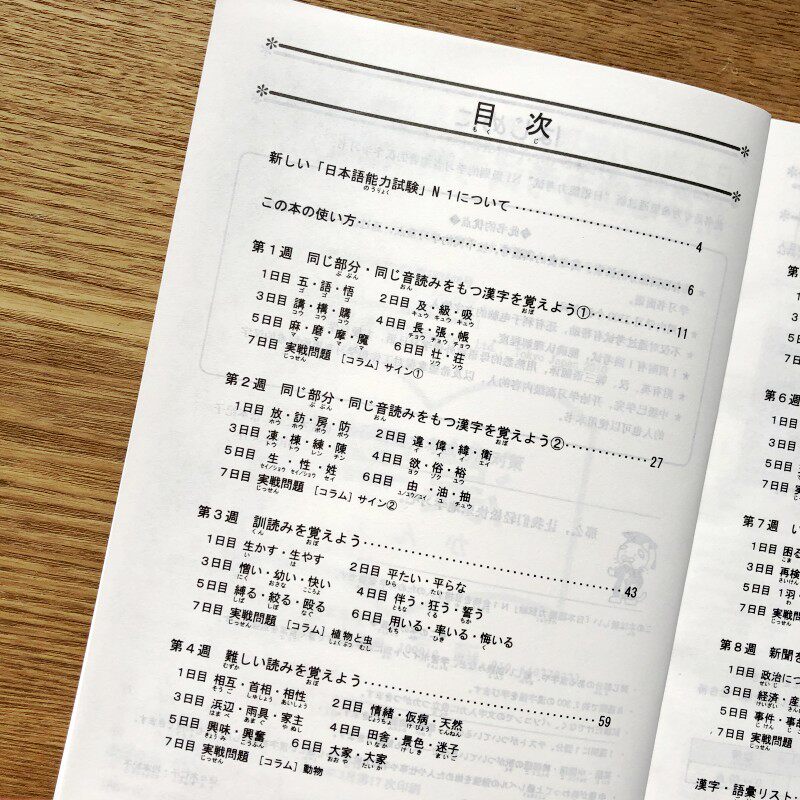 目次
新しい「日本語能力試験」N1について 4
この本の使い方 6
第1週 同じ部分・同じ音読みをもつ漢字を覚えよう① 11
1日目 五・語・悟 2日目 及・級・吸
3日目 講・構・購 4日目 長・張・帳
5日目 麻・磨・摩・魔 6日目 壮・荘
7日目 実戦問題 [コラム] サイン①
第2週 同じ部分・同じ音読みをもつ漢字を覚えよう② 27
1日目 放・訪・房・防 2日目 違・偉・緯・衛
3日目 凍・棟・練・陳 4日目 欲・俗・裕
5日目 生・性・姓 6日目 由・油・抽
7日目 実戦問題 [コラム] サイン②
第3週 訓読みを覚えよう 43
1日目 生かす・生やす 2日目 平たい・平らな
3日目 憎い・幼い・快い 4日目 伴う・狂う・誓う
5日目 縛る・絞る・殴る 6日目 用いる・率いる・悔いる
7日目 実戦問題 [コラム] 植物と虫
第4週 難しい読みを覚えよう 59
1日目 相互・首相・相性 2日目 情緒・仮病・天然
3日目 浜辺・雨具・家主 4日目 田舎・景色・迷子
5日目 興味・興奮 6日目 大家・大家
7日目 実戦問題 [コラム] 動物
第6週
1日目
3日目
5日目
7日目
第7週
1日目 困る
3日目 再検
5日目 1羽・
7日目 実戦問題
第8週 新聞
1日目 政治に
3日目 経済・産
5日目 事件・事
7日目 実戦問題
漢字・語彙リスト